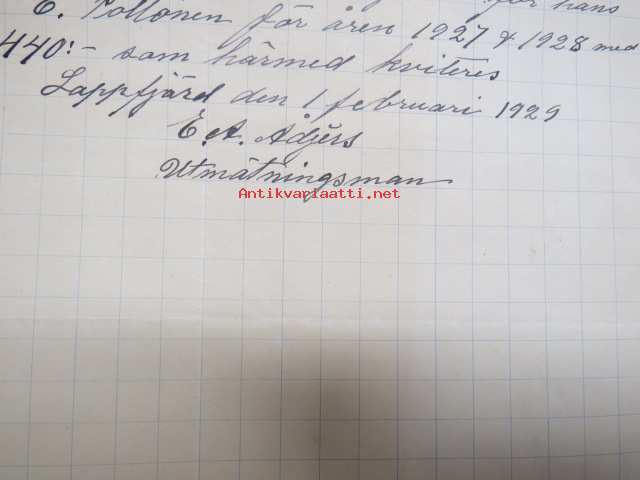 för hans
E. Pollönen för åren 1927 & 1928 med
440:- som härmed kviteres
Lappfjärd den 1 februari 1929
E. A. Ådjers
Utmätningsman
Antikvariaatti.net